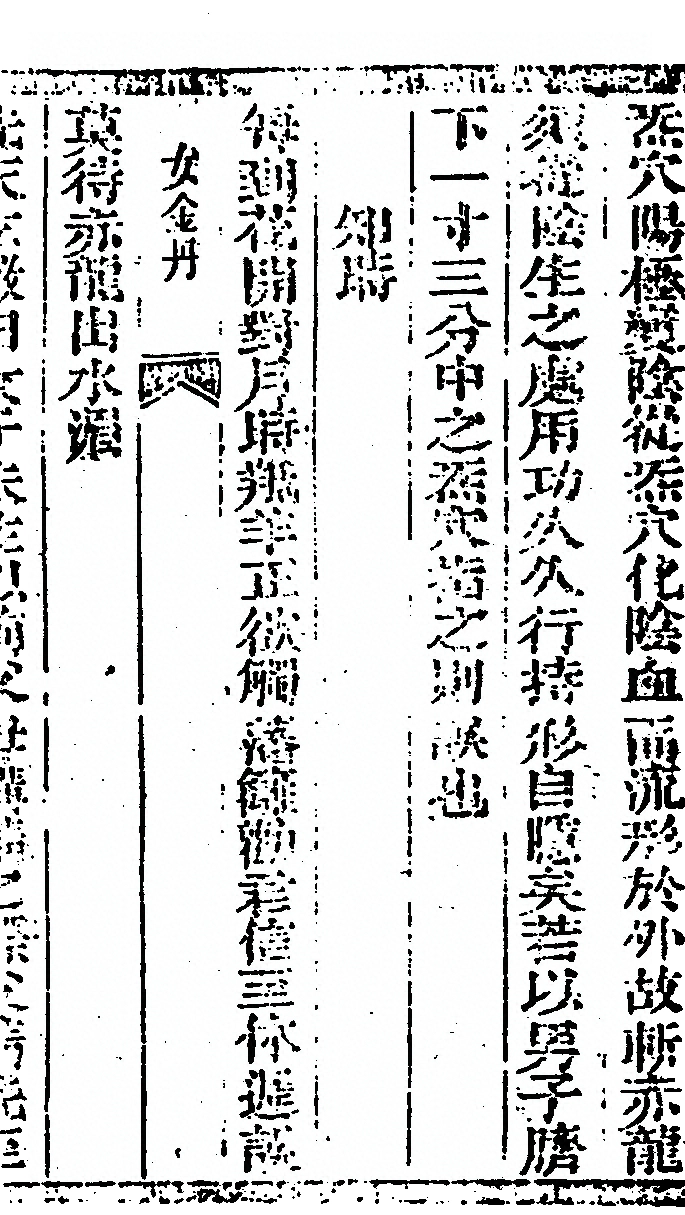 炁穴陽極變陰從炁穴化陰血而流形於外故斬赤龍
須從陰生之處用功久久行持形自隱矣若以男子臍
下一寸三分中之炁穴指之則誤也
知時
每到花開對月時羝羊正欲觸藩籬勸君值至休遲誤
女金丹
莫待赤龍出水湄